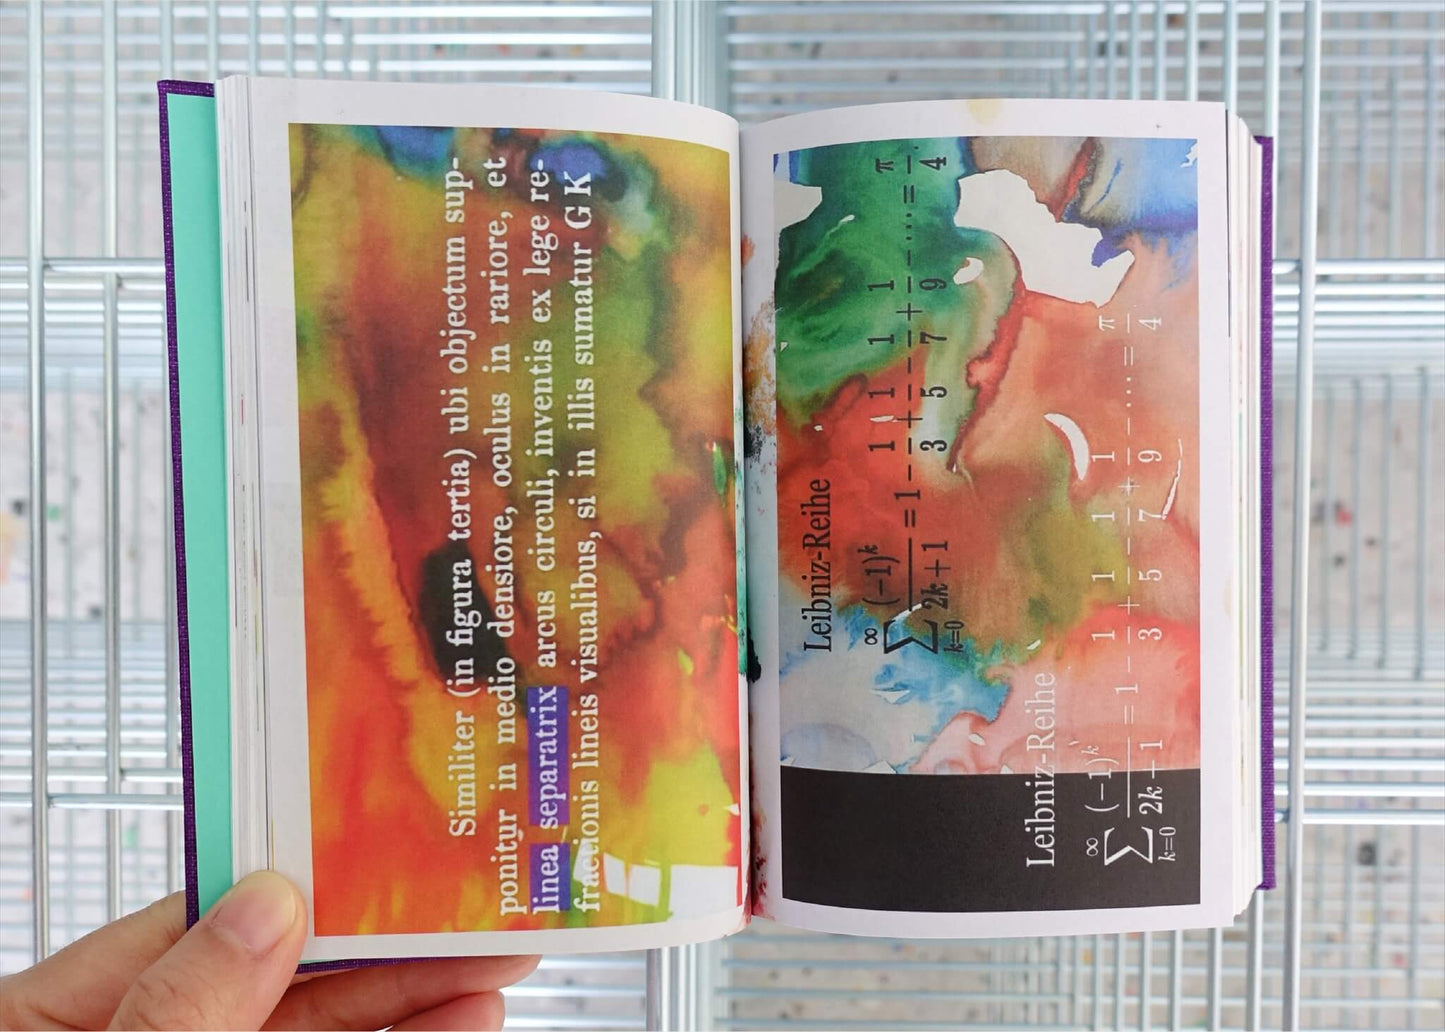 Similiter (in figura tertia) ubi objectum sup-
ponitur in medio densiore, oculus in rariore, et
linea separatrix arcus circuli, inventis ex lege re-
fractionis lineis visualibus, si in illis sumatur G K
Leibniz-Reihe
∑_{k=0}^{∞} (-1)^k/(2k+1) = 1 - 1/3 + 1/5 - 1/7 + 1/9 - ··· = π/4
Leibniz-Reihe
∑_{k=0}^{∞} (-1)^k/(2k+1) = 1 - 1/3 + 1/5 - 1/7 + 1/9 - ··· = π/4